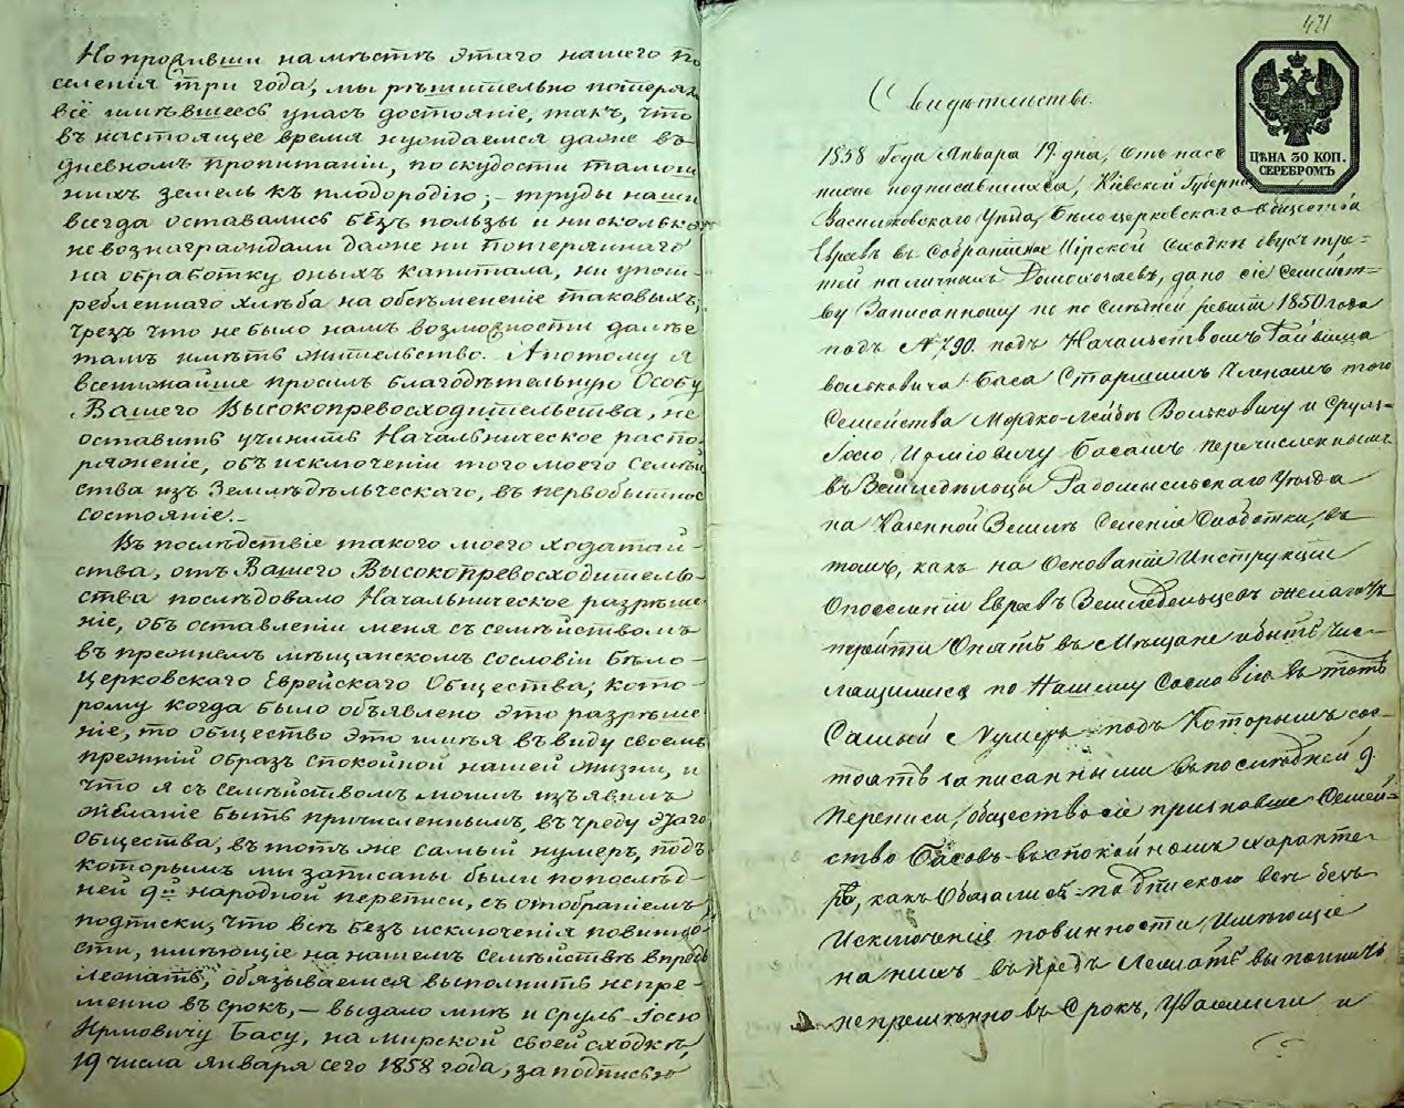 Но проживши на мѣстѣ этаго нашего по
селенія три года, мы рѣшительно потеряли
всё имѣвшееся унасъ достояніе, такъ, что
въ настоящее время нуждаемся даже въ
дневномъ пропитаніи, по скудости тамош
нихъ земель къ плодородію; – труды наши
всегда оставались безъ пользы и нисколько
не вознаграждали даже ни потеряннаго
на обработку оныхъ капитала, ни упот-
ребленнаго хлѣба на обсѣмененіе таковыхъ;
чрезъ что не было намъ возможности далѣе
тамъ имѣть жительство. А потому я
всенижайше просилъ благодѣтельную Особу
Вашего Высокопревосходительства, не
оставить учинить Начальническое распо-
ряженіе, объ исключеніи того моего Семѣй
ства изъ Земледѣльческаго, въ первобытное
состояніе. –
Въ послѣдствіе такого моего ходатай-
ства, отъ Вашего Высокопревосходитель-
ства послѣдовало Начальническое разрѣше-
ніе, объ оставленіи меня съ семѣйствомъ
въ прежнемъ мѣщанскомъ сословіи Бѣло-
церковскаго Еврейскаго Общества; Кото-
рому когда было объявлено это разрѣше
ніе, то общество это имѣя въ виду своемъ
прежній образъ спокойной нашей жизни, и
что я съ семѣйствомъ моимъ изъявилъ
желаніе быть причисленнымъ, въ чреду этаго
общества, въ тотъ же самый нумеръ, подъ
которымъ мы записаны были по послѣд-
ней 9й народной переписи, съ отобраніемъ
подписки, что всѣ безъ исключенія повинно-
сти, имѣющіе на нашемъ семѣйствѣ впредь
лежать, обязываемся выполнить непре-
менно въ срокъ, – выдало мнѣ и Сруль Іосю
Ирмовичу Басу, на мирской своей сходкѣ,
19 числа Января сего 1858 года, за подписью
421
ЦѢНА 30 КОП.
СЕРЕБРОМЪ
Свидѣтельство.
1858 Года Января 19. дня, Отъ насъ
ниже подписавшихся, Кіевской Губерніи
Васильковскаго Уѣзда, Бѣлоцерковскаго общества
Евреевъ въ Собраніи Мірской Сходки двухъ тре=
тей наличныхъ Домохозяевъ, дано сіе Семѣйст=
ву Записанному по по слѣдней ревизіи 1850 года
подъ № 790. подъ Начальствомъ
вольковича Баса Старшимъ Членамъ того
Семейства Мордко-Лейбѣ Вольковичу и Сруль-
Іосю Ирміовичу Басамъ перечисленнымъ
въ Земледѣльцы Радомысльскаго Уѣзда
на Казенной Землѣ Селенія Слободки, въ
томъ, какъ на Основаніи Инструкціи
Опоселеніи Евреевъ Земледельцевъ
перейти Опять въ Мѣщане и быть Чис-
лящимися по Нашему Сословію въ тотъ
Самый Нумеръ подъ Которымъ сос-
тоятъ записанными въ послѣдней 9.
Переписи, общество сіе признавше Семей=
ство Басовъ въ спокойномъ характе-
рѣ, какъ Обязались подпискою всѣ безъ
Исключенія повинности, Имѣющіе
на нихъ въ предь Лежать выполнить
непремѣнно въ Срокъ, и